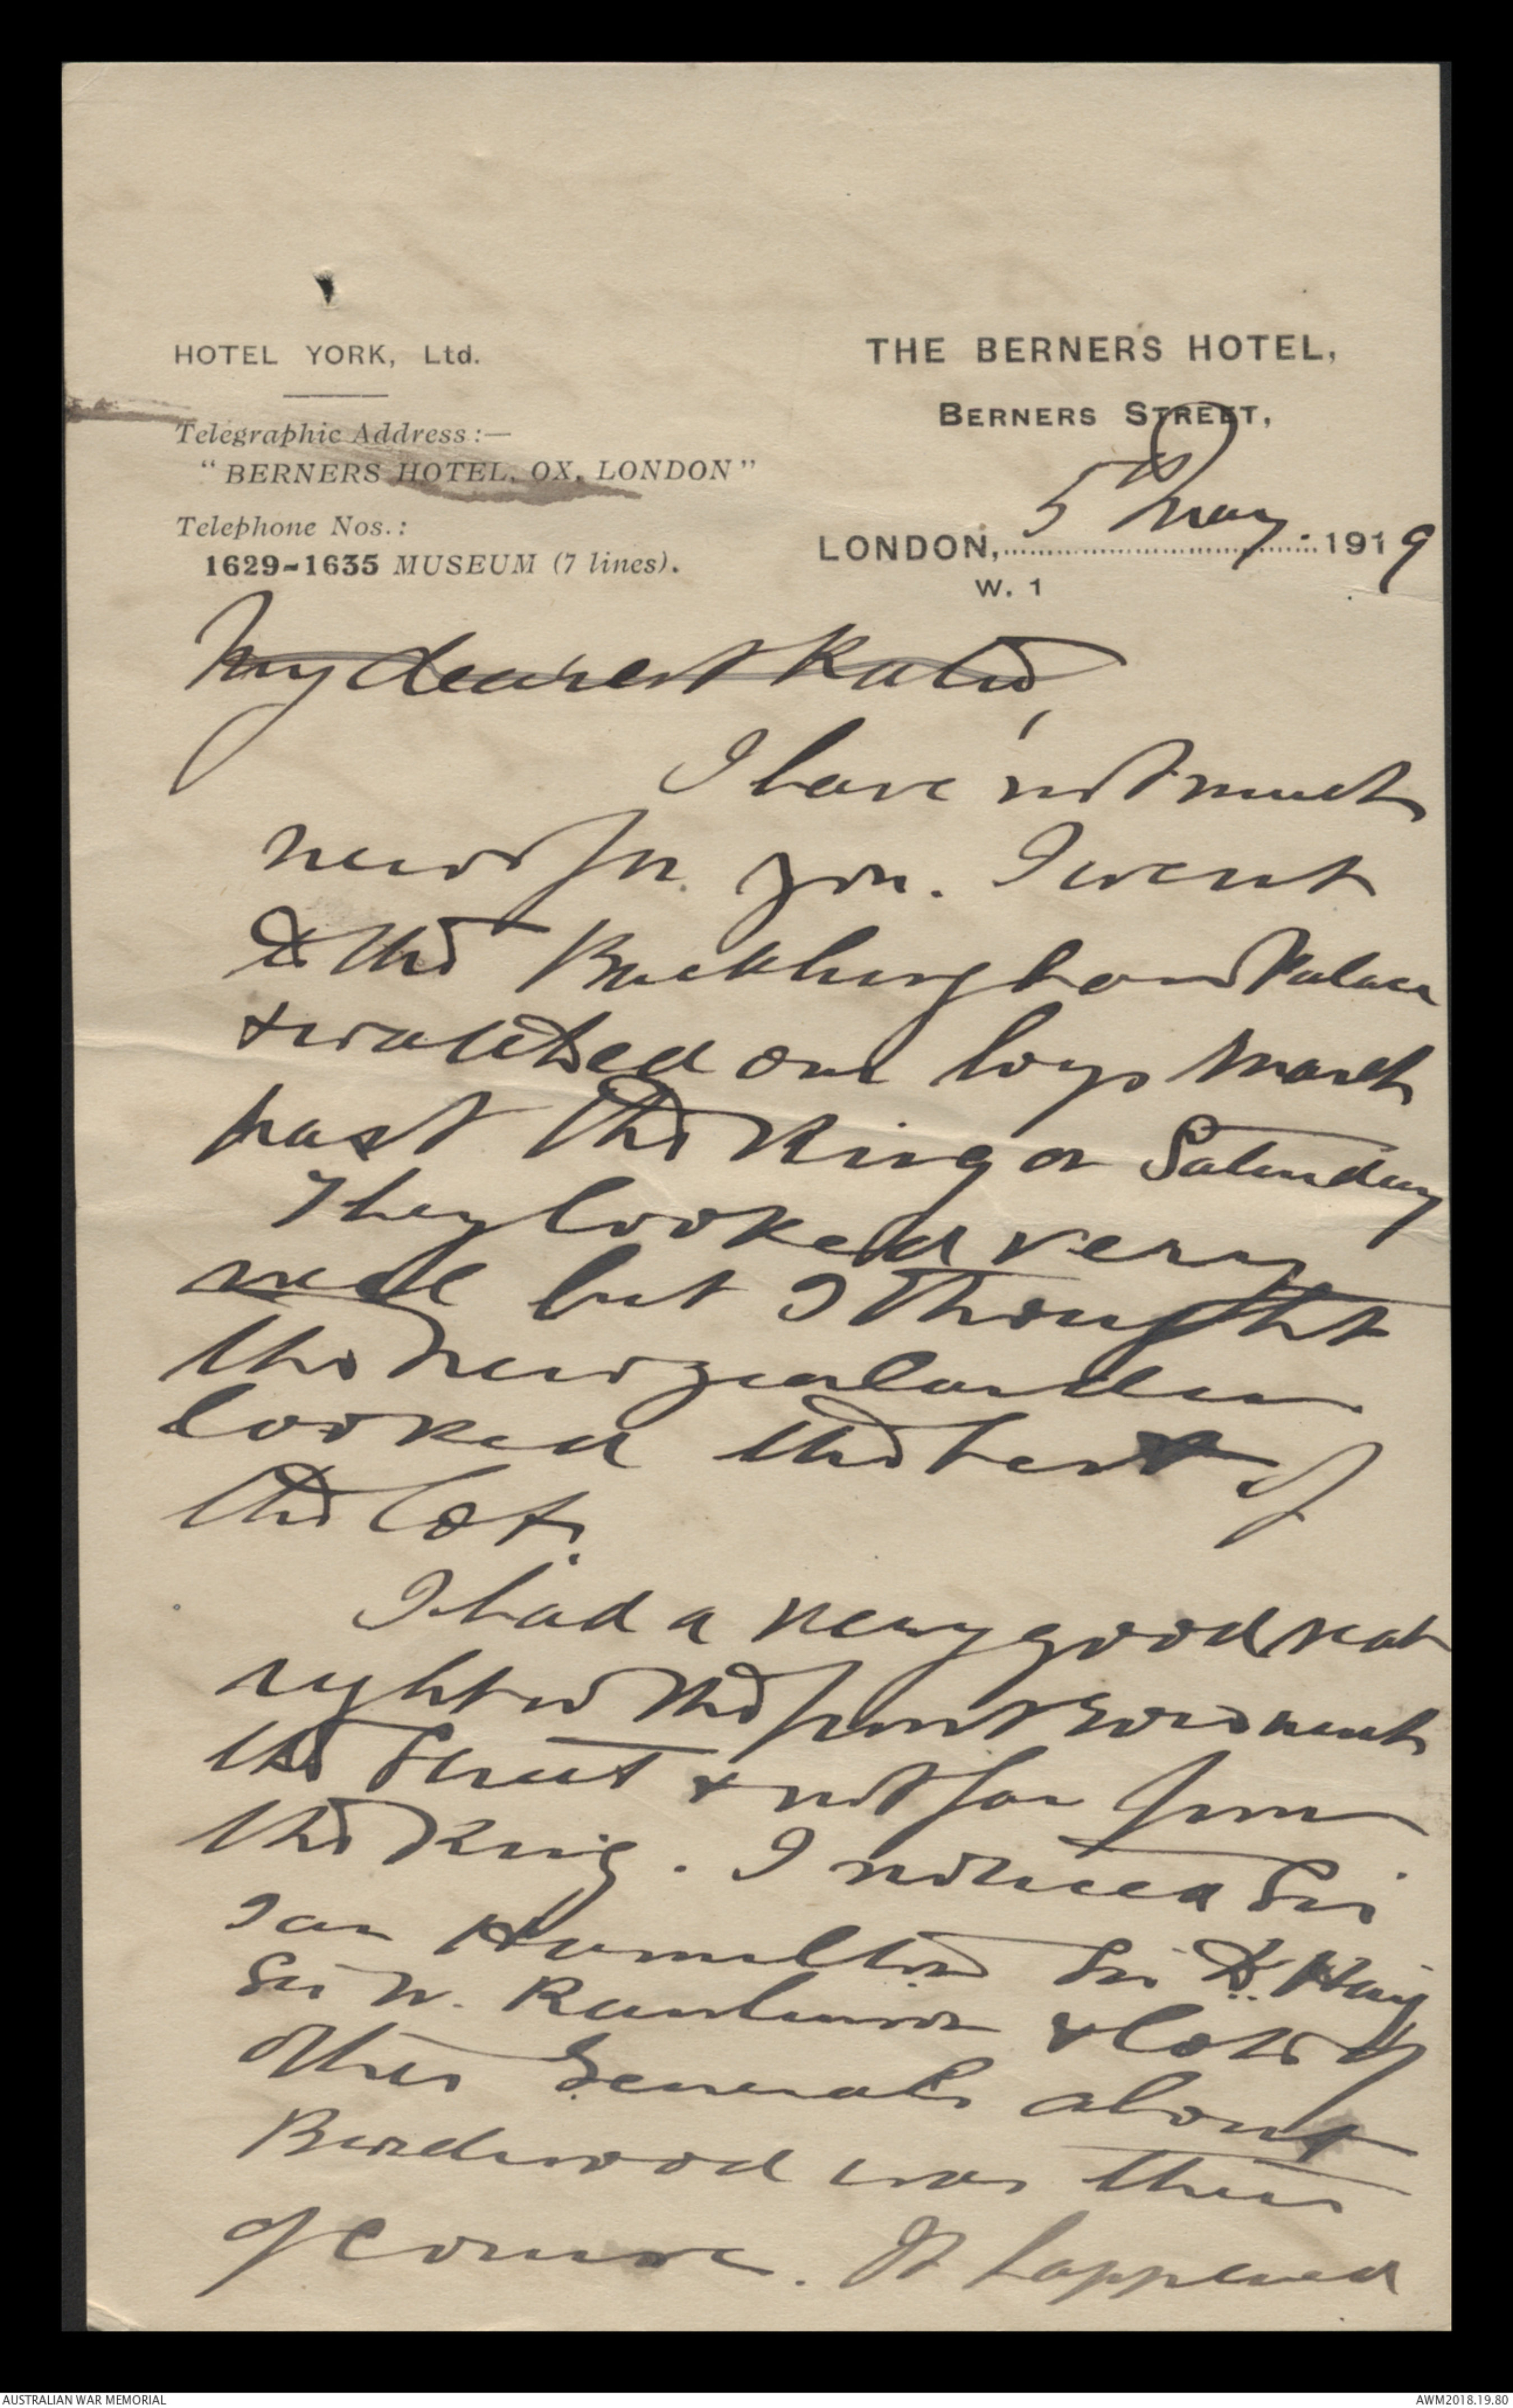 HOTEL YORK, Ltd.
Telegraphic Address:—
"BERNERS HOTEL, OX, LONDON"
Telephone Nos.:
1629-1635 MUSEUM (7 lines).
THE BERNERS HOTEL,
BERNERS STREET,
LONDON, 5th May 1919
W. 1
My dearest Katie,
I have not much
news for you. I went
to the Buckingham Palace
& watched our boys march
past the King on Saturday
They looked very
well but I thought
the New Zealanders
looked the best of
the lot.
I had a very good seat
right in the front row
the Street & not far from
the King. I noticed Sir
Ian Hamilton Sir D. Haig
Sir W. Rawlinson & lots of
other Generals about
Birdwood was there
of course. It happened
AUSTRALIAN WAR MEMORIAL
AWM2018.19.80